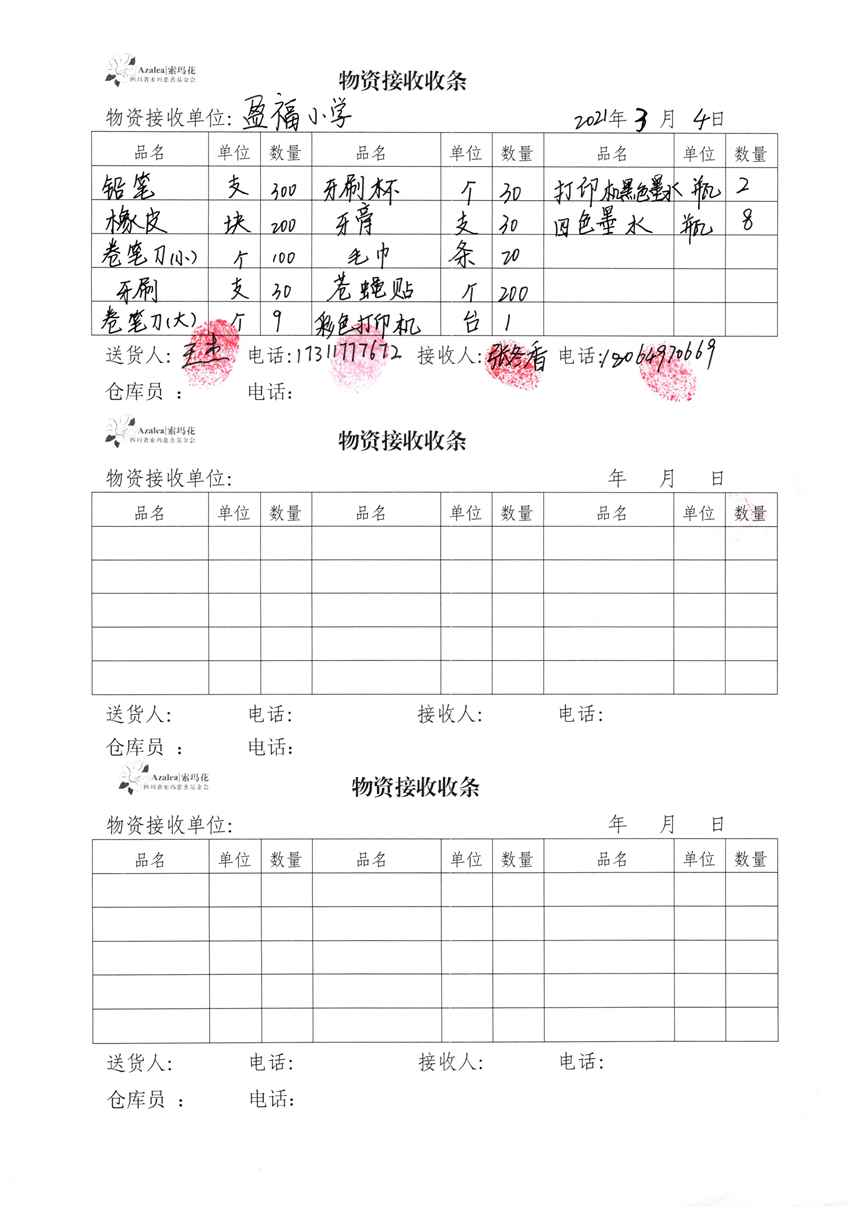 Azalea|索玛花
四川省索玛慈善基金会
物资接收收条
物资接收单位: 盈福小学 2021年 3 月 4日
品名 单位 数量 品名 单位 数量 品名 单位 数量
铅笔 支 300 牙刷杯 个 30 打印机黑色墨水 瓶 2
橡皮 块 200 牙膏 支 30 四色墨水 瓶 8
卷笔刀(小) 个 100 毛巾 条 20
牙刷 支 30 苍蝇贴 个 200
卷笔刀(大) 个 9 彩色打印机 台 1
送货人: 王杰 电话:17311777672 接收人: 电话:18064970669
仓库员 : 电话:
Azalea|索玛花
四川省索玛慈善基金会
物资接收收条
物资接收单位: 年 月 日
品名 单位 数量 品名 单位 数量 品名 单位 数量
送货人: 电话: 接收人: 电话:
仓库员 : 电话:
Azalea|索玛花
四川省索玛慈善基金会
物资接收收条
物资接收单位: 年 月 日
品名 单位 数量 品名 单位 数量 品名 单位 数量
送货人: 电话: 接收人: 电话:
仓库员 : 电话: